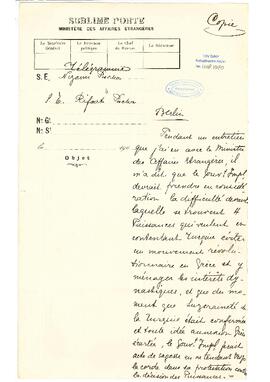 Copie
SUBLIME PORTE
MINISTÈRE DES AFFAIRES ÉTRANGÈRES
Le Secrétaire Général
Le Directeur politique
Le Chef du Bureau
Le Rédacteur
Télégramme
S. E. Nizami Pacha
S. E. Rifaat Pacha
Berlin
N: G:
N: S:
le 190
Objet
Pendant un entretien
que j'ai eu avec le Ministre
des Affaires Étrangères, il
m'a dit que le Gouvt Impl
devrait prendre en considé
ration la difficulté devant
laquelle se trouvent 4
Puissances qui veulent en
contentant Turquie éviter
un mouvement révolu
tionnaire en Grèce et y
ménager les intérêts dy
nastiques, et que du mo
ment que Suzeraineté de
la Turquie était confirmée
et toute idée annexion
le Gouvt Impl
acte de sagesse en ne tendant
la corde dans sa protestation contre
la décision des Puissances.